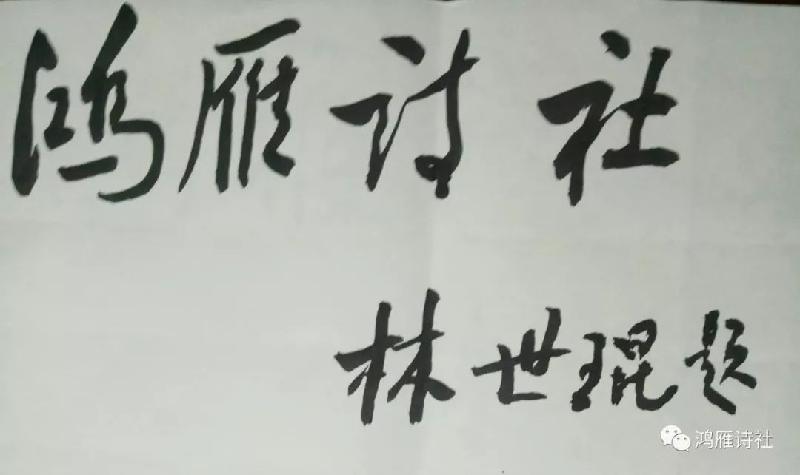 鸿雁诗社
林世琨题
鸿雁诗社